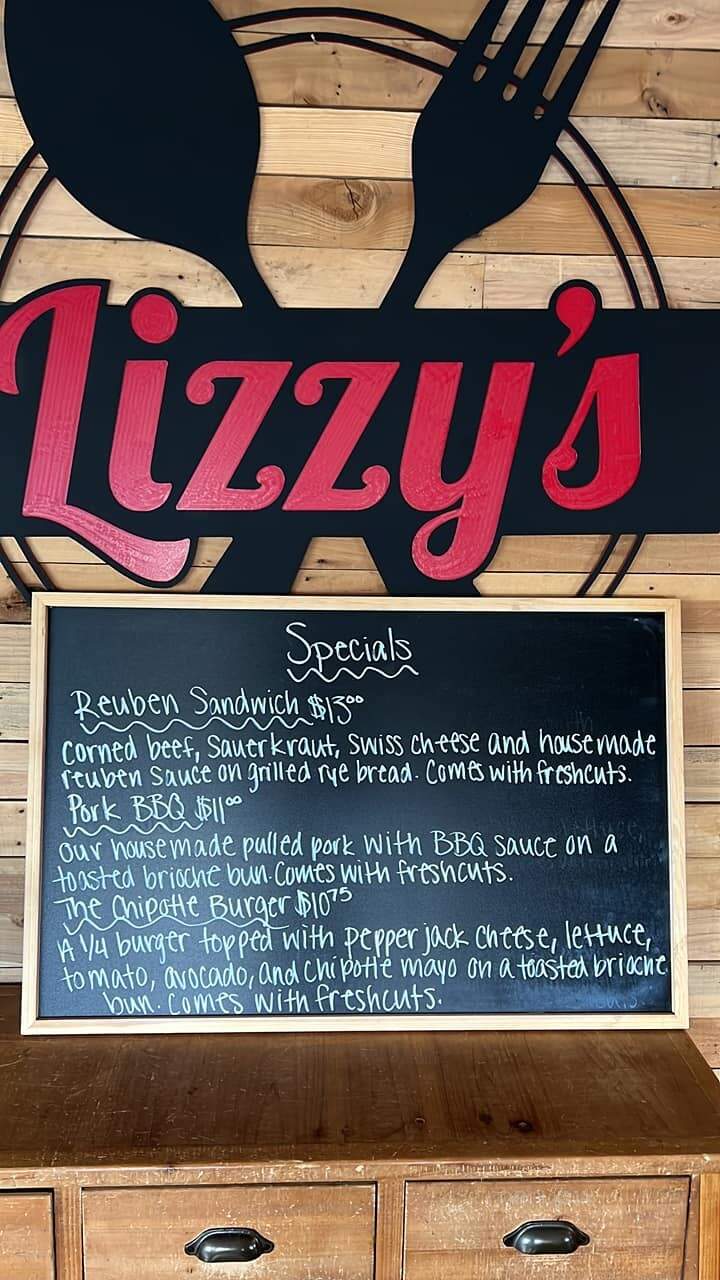 Lizzy's
Specials
Reuben Sandwich $13⁰⁰
corned beef, sauerkraut, swiss cheese and housemade
reuben sauce on grilled rye bread. Comes with freshcuts.
Pork BBQ $11⁰⁰
our housemade pulled pork with BBQ sauce on a
toasted brioche bun. Comes with freshcuts.
The Chipotle Burger $10⁷⁵
A 1/4 burger topped with pepper jack cheese, lettuce,
tomato, avocado, and chipotle mayo on a toasted brioche
bun. Comes with freshcuts.